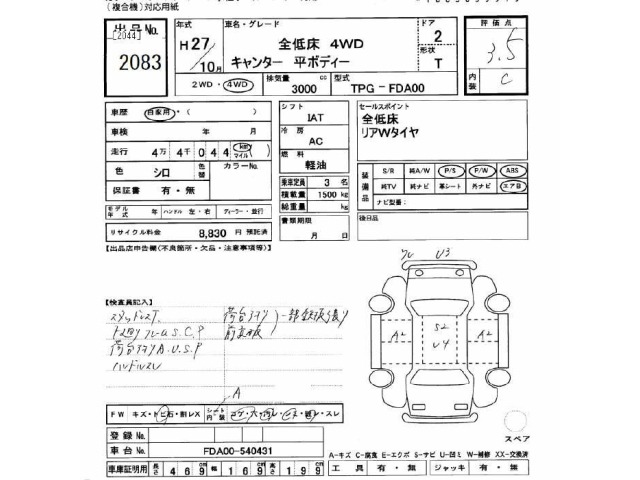 (複合機)対応用紙
出品No.
[2044]
2083
年式
H27/10月
車名・グレード
全低床 4WD
キャンター 平ボディー
ドア
2
形状
T
評価点
3.5
内装
C
2WD・4WD
排気量
3000 cc
型式
TPG-FDA00
車歴 自家用・( )
車検 年 月
走行 4万 4千 0 4 4 km マイル
色 シロ 色替 カラーNo.
保証書 有・無
モデル年式 年 ハンドル 左・右 ディーラー・並行
リサイクル料金 8,830 円 預託済
シフト
IAT
冷房
AC
燃料
軽油
乗車定員 3 名
積載量 1500 kg
総重量 kg
書類期限
月 日
セールスポイント
全低床
リアWタイヤ
装備品
S/R 純A/W P/S P/W ABS
純TV 純ナビ 革シート 外ナビ エアB
ナビ型番:
後日品
【出品店申告欄(不良箇所・欠品・注意事項等)】
【検査員記入】
A
U3
A2
S2
U4
A2
FW キズ・トビ石・割レX シート内装 コゲ・穴・ スレ
登録No.
車台No. FDA00-540431
車庫証明用 長さ 469cm 幅 169cm 高さ 199cm
スペア
A-キズ C-腐食 E-エクボ S-サビ U-凹ミ W-補修 XX-交換済
工具 有・無 ジャッキ 有・無